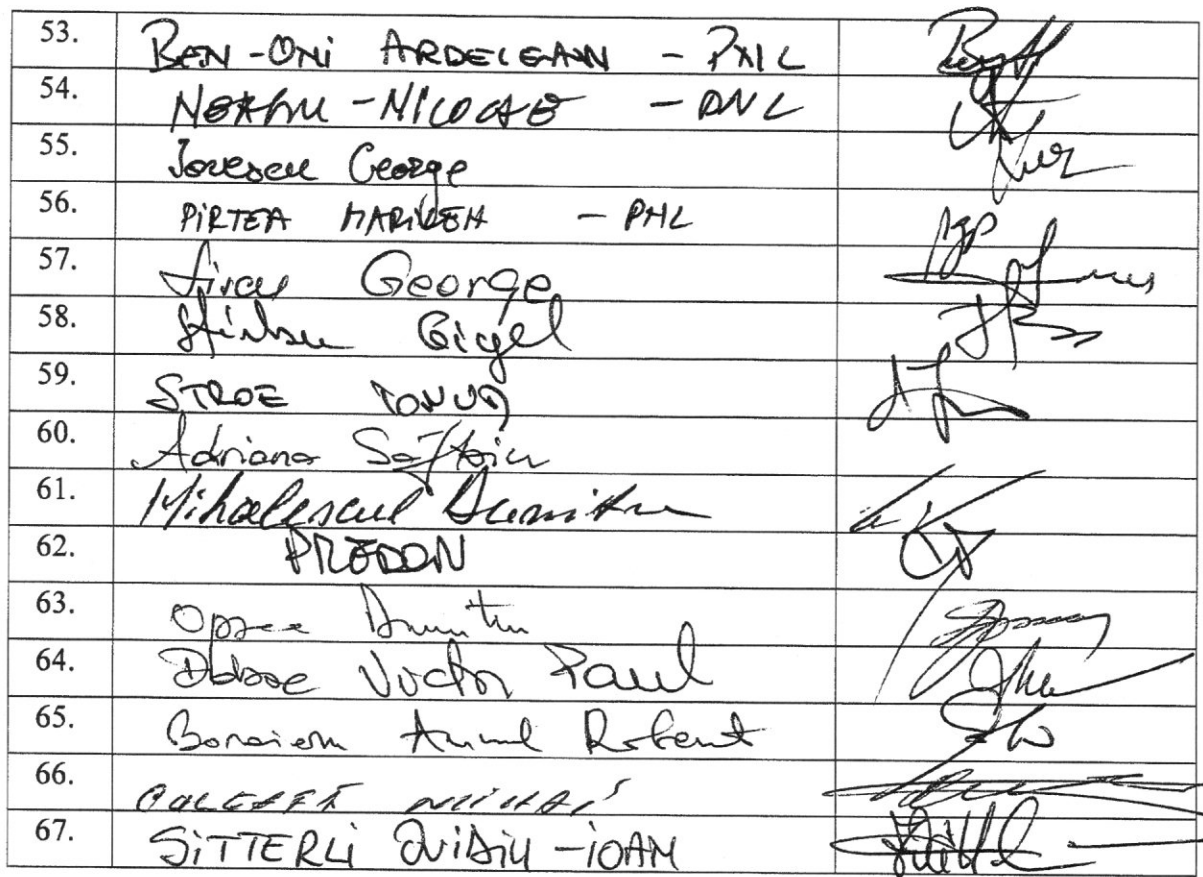 53. BEN-ONI ARDELEAN - PNL
54. NEAGU - NICOLAE - PNL
55. Ionescu George
56. PIRTEA MARILEN - PNL
57. Șircu George
58. Știrbu Gigel
59. STROE IONUȚ
60. Adriana Săftoiu
61. Mihalescul Dumitru
62. PREDOIU
63. Oprea Dumitru
64. Dobre Victor Paul
65. Boroianu Aurel Robert
66. CULEAFĂ MIHAI
67. SITTERLI OVIDIU - IOAN